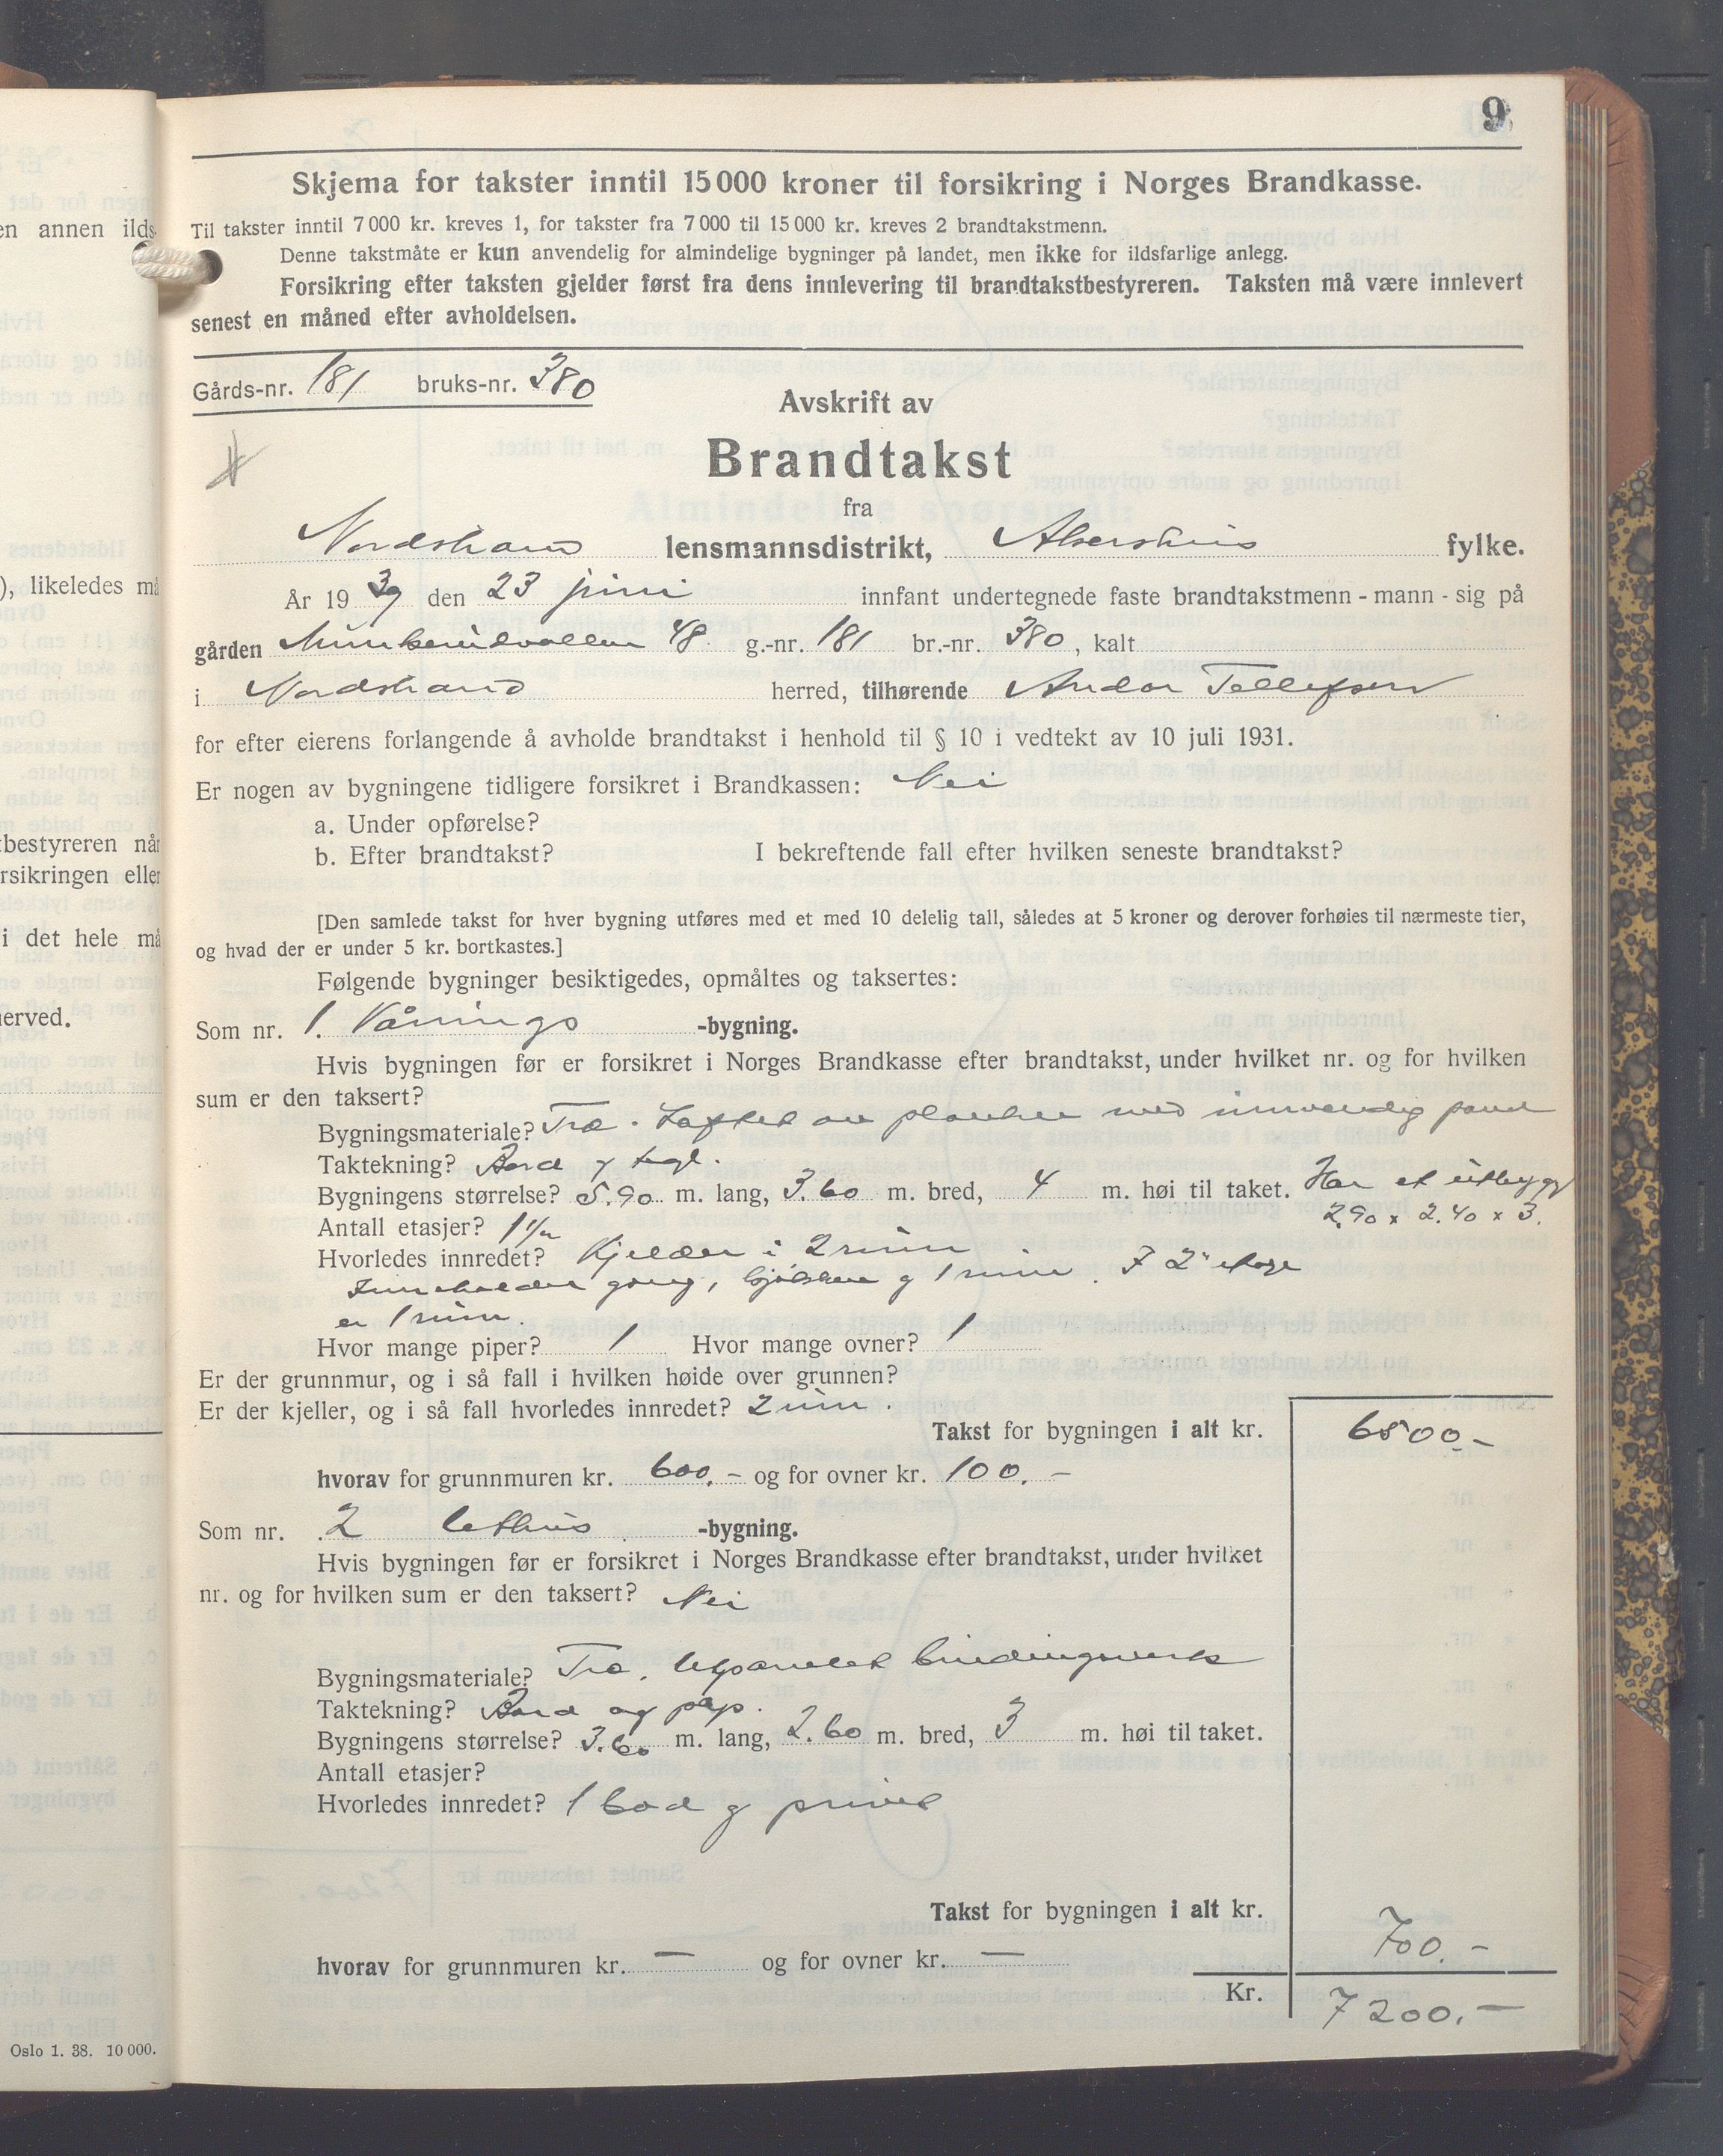 9
Skjema for takster inntil 15 000 kroner til forsikring i Norges Brandkasse.
Til takster inntil 7 000 kr. kreves 1, for takster fra 7 000 til 15 000 kr. kreves 2 brandtakstmenn.
Denne takstmåte er kun anvendelig for almindelige bygninger på landet, men ikke for ildsfarlige anlegg.
Forsikring efter taksten gjelder først fra dens innlevering til brandtakstbestyreren. Taksten må være innlevert
senest en måned efter avholdelsen.
Gårds-nr. 181 bruks-nr. 380
Avskrift av
Brandtakst
fra
Nordstrand lensmannsdistrikt, Akershus fylke.
År 1939 den 23 juni innfant undertegnede faste brandtakstmenn - mann - sig på
gården Munkerudvollen 48 g.-nr. 181 br.-nr. 380, kalt
i Nordstrand herred, tilhørende Andor Tellefsen
for efter eierens forlangende å avholde brandtakst i henhold til § 10 i vedtekt av 10 juli 1931.
Er nogen av bygningene tidligere forsikret i Brandkassen: Nei
a. Under opførelse?
b. Efter brandtakst? I bekreftende fall efter hvilken seneste brandtakst?
[Den samlede takst for hver bygning utføres med et med 10 delelig tall, således at 5 kroner og derover forhøies til nærmeste tier,
og hvad der er under 5 kr. bortkastes.]
Følgende bygninger besiktigedes, opmåltes og taksertes:
Som nr. 1. Vånings -bygning.
Hvis bygningen før er forsikret i Norges Brandkasse efter brandtakst, under hvilket nr. og for hvilken
sum er den taksert?
Bygningsmateriale? Tre. Laftet av planker med innvendig panel
Taktekning? Bord og tegl.
Bygningens størrelse? 5.90 m. lang, 3.60 m. bred, 4 m. høi til taket. Har et utbygg
2.90 x 2.40 x 3.
Antall etasjer? 1 1/2
Hvorledes innredet? Kjelder i 2 rum
Inneholder gang, kjøkken og 1 rum. I 2' etage
er 1 rum.
Hvor mange piper? 1 Hvor mange ovner? 1
Er der grunnmur, og i så fall i hvilken høide over grunnen?
Er der kjeller, og i så fall hvorledes innredet? 2 rum.
Takst for bygningen i alt kr. 6500.-
hvorav for grunnmuren kr. 600.- og for ovner kr. 100.-
Som nr. 2 Uthus -bygning.
Hvis bygningen før er forsikret i Norges Brandkasse efter brandtakst, under hvilket
nr. og for hvilken sum er den taksert? Nei
Bygningsmateriale? Tre. Utpanelet bindingsverk
Taktekning? Bord og pap.
Bygningens størrelse? 3.60 m. lang, 2.60 m. bred, 3 m. høi til taket.
Antall etasjer?
Hvorledes innredet? 1 bod og privet
Takst for bygningen i alt kr. 700.-
hvorav for grunnmuren kr. — og for ovner kr. —
Kr. 7200.-
en annen ilds-
), likeledes må
tbestyreren når
rsikringen eller
i det hele må
erved.
Oslo 1. 38. 10 000.